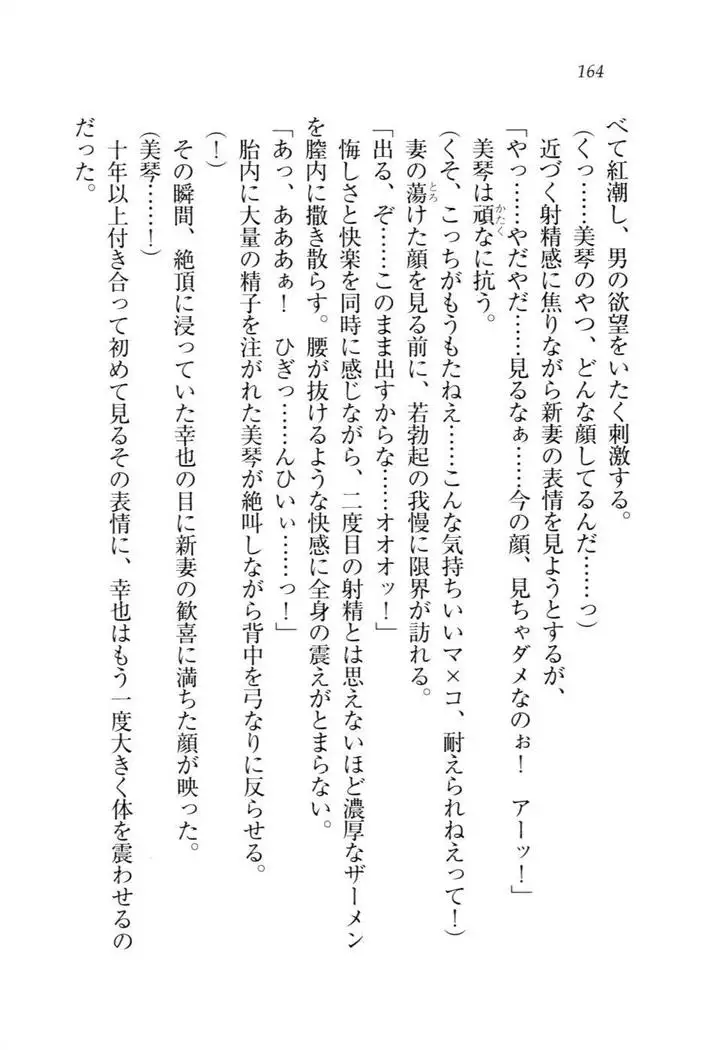 164
べて紅潮し、男の欲望をいたく刺激する。
(くっ……美琴のやつ、どんな顔してるんだ……っ)
近づく射精感に焦りながら新妻の表情を見ようとするが、
「やっ……やだやだ……見るなぁ……今の顔、見ちゃダメなのぉ！　アーッ！」
美琴は頑なに抗う。
(くそ、こっちがもうもたねえ……こんな気持ちいいマ×コ、耐えられねえって！)
妻の蕩けた顔を見る前に、若勃起の我慢に限界が訪れる。
「出る、ぞ……このまま出すからな……オオオッ！」
悔しさと快楽を同時に感じながら、二度目の射精とは思えないほど濃厚なザーメン
を膣内に撒き散らす。腰が抜けるような快感に全身の震えがとまらない。
「あっ、あああぁ！　ひぎっ……んひいぃ……っ！」
胎内に大量の精子を注がれた美琴が絶叫しながら背中を弓なりに反らせる。
(！)
その瞬間、絶頂に浸っていた幸也の目に新妻の歓喜に満ちた顔が映った。
(美琴……！)
十年以上付き合って初めて見るその表情に、幸也はもう一度大きく体を震わせるの
だった。